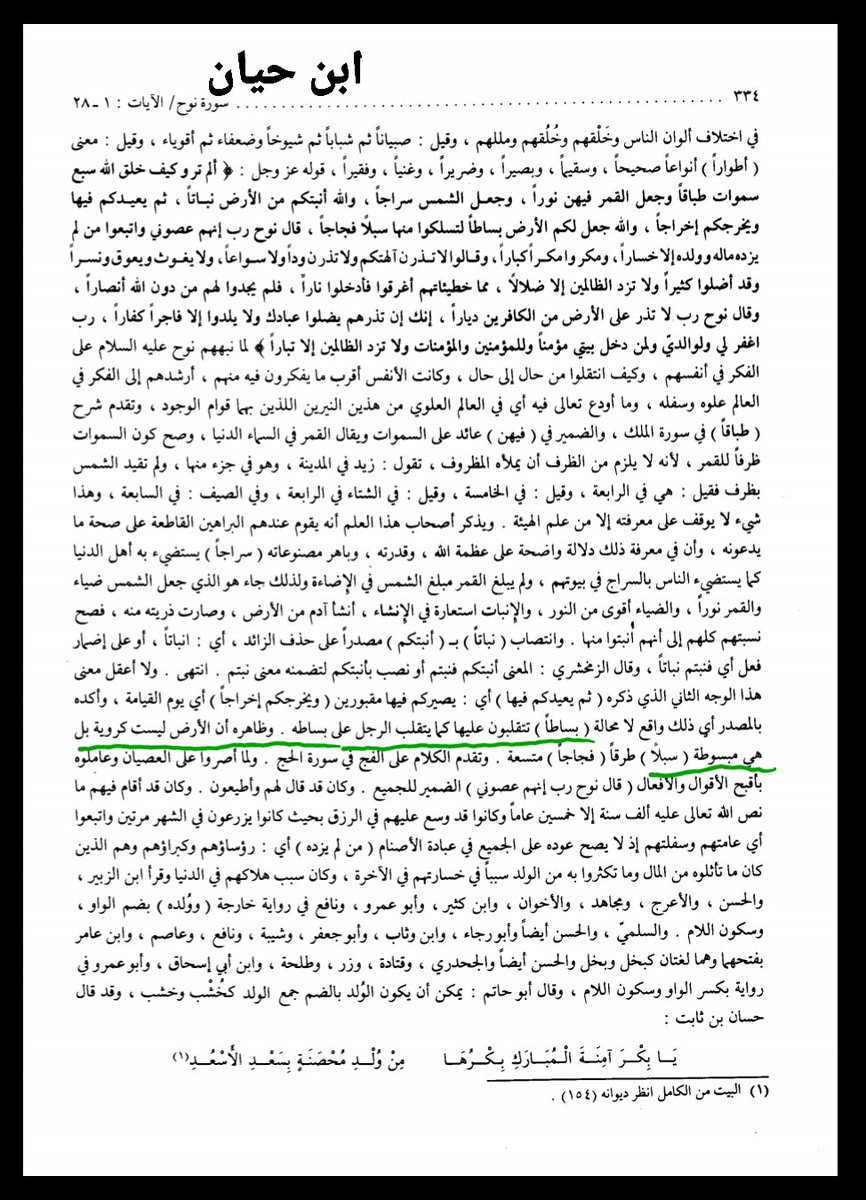 ابن حيان
٣٣٤ ........ سورة نوح/ الآيات : ١ - ٢٨
في اختلاف ألوان الناس وخَلْقهم وخُلُقهم ومللهم ، وقيل : صبياناً ثم شباباً ثم شيوخاً وضعفاء ثم أقوياء ، وقيل : معنى
( أطواراً ) أنواعاً صحيحاً ، وسقيماً ، وبصيراً ، وضريراً ، وغنياً ، وفقيراً ، قوله عز وجل : ﴿ ألم تروكيف خلق الله سبع
سموات طباقاً وجعل القمر فيهن نوراً ، وجعل الشمس سراجاً ، والله أنبتكم من الأرض نباتاً ، ثم يعيدكم فيها
ويخرجكم إخراجاً ، والله جعل لكم الأرض بساطاً لتسلكوا منها سبلًا فجاجاً ، قال نوح رب إنهم عصوني واتبعوا من لم
يزده ماله وولده إلا خساراً ، ومكروا مكراً كباراً ، وقالوا لا تذرن آلهتكم ولا تذرن وداً ولا سواعاً ، ولا يغوث ويعوق ونسراً
وقد أضلوا كثيراً ولا تزد الظالمين إلا ضلالاً ، مما خطيئاتهم أغرقوا فأدخلوا ناراً ، فلم يجدوا لهم من دون الله أنصاراً ،
وقال نوح رب لا تذر على الأرض من الكافرين دياراً ، إنك إن تذرهم يضلوا عبادك ولا يلدوا إلا فاجراً كفاراً ، رب
اغفر لي ولوالديّ ولمن دخل بيتي مؤمناً وللمؤمنين والمؤمنات ولا تزد الظالمين إلا تباراً ﴾ لما نبههم نوح عليه السلام على
الفكر في أنفسهم ، وكيف انتقلوا من حال إلى حال ، وكانت الأنفس أقرب ما يفكرون فيه منهم ، أرشدهم إلى الفكر في
العالم علوه وسفله ، وما أودع تعالى فيه أي في العالم العلوي من هذين النيرين اللذين بهما قوام الوجود ، وتقدم شرح
( طباقاً ) في سورة الملك ، والضمير في ( فيهن ) عائد على السموات ويقال القمر في السماء الدنيا ، وصح كون السموات
ظرفاً للقمر ، لأنه لا يلزم من الظرف أن يملأه المظروف ، تقول : زيد في المدينة ، وهو في جزء منها ، ولم تقيد الشمس
بظرف فقيل : هي في الرابعة ، وقيل : في الخامسة ، وقيل : في الشتاء في الرابعة ، وفي الصيف : في السابعة ، وهذا
شيء لا يوقف على معرفته إلا من علم الهيئة . ويذكر أصحاب هذا العلم أنه يقوم عندهم البراهين القاطعة على صحة ما
يدعونه ، وأن في معرفة ذلك دلالة واضحة على عظمة الله ، وقدرته ، وباهر مصنوعاته ( سراجاً ) يستضيء به أهل الدنيا
كما يستضيء الناس بالسراج في بيوتهم ، ولم يبلغ القمر مبلغ الشمس في الإضاءة ولذلك جاء هو الذي جعل الشمس ضياء
والقمر نوراً ، والضياء أقوى من النور ، والإنبات استعارة في الإنشاء ، أنشأ آدم من الأرض ، وصارت ذريته منه ، فصح
نسبتهم كلهم إلى أنهم أنبتوا منها . وانتصاب ( نباتاً ) بـ ( أنبتكم ) مصدراً على حذف الزائد ، أي : انباتاً ، أو على إضمار
فعل أي فنبتم نباتاً ، وقال الزمخشري : المعنى أنبتكم فنبتم أو نصب بأنبتكم لتضمنه معنى نبتم . انتهى . ولا أعقل معنى
هذا الوجه الثاني الذي ذكره ( ثم يعيدكم فيها ) أي : يصيركم فيها مقبورين ( ويخرجكم إخراجاً ) أي يوم القيامة ، وأكده
بالمصدر أي ذلك واقع لا محالة ( بساطاً ) تتقلبون عليها كما يتقلب الرجل على بساطه . وظاهره أن الأرض ليست كروية بل
هي مبسوطة ( سبلًا ) طرقاً ( فجاجاً ) متسعة . وتقدم الكلام على الفج في سورة الحج . ولما أصروا على العصيان وعاملوه
بأقبح الأقوال والأفعال ( قال نوح رب إنهم عصوني ) الضمير للجميع . وكان قد قال لهم وأطيعون . وكان قد أقام فيهم ما
نص الله تعالى عليه ألف سنة إلا خمسين عاماً وكانوا قد وسع عليهم في الرزق بحيث كانوا يزرعون في الشهر مرتين واتبعوا
أي عامتهم وسفلتهم إذ لا يصح عوده على الجميع في عبادة الأصنام ( من لم يزده ) أي : رؤساؤهم وكبراؤهم وهم الذين
كان ما تأثلوه من المال وما تكثروا به من الولد سبباً في خسارتهم في الآخرة ، وكان سبب هلاكهم في الدنيا وقرأ ابن الزبير ،
والحسن ، والأعرج ، ومجاهد ، والأخوان ، وابن كثير ، وأبو عمرو ، ونافع في رواية خارجة ( ووُلده ) بضم الواو ،
وسكون اللام . والسلميّ ، والحسن أيضاً وأبو رجاء ، وابن وثاب ، وأبو جعفر ، وشيبة ، ونافع ، وعاصم ، وابن عامر
بفتحهما وهما لغتان كبخل وبخل والحسن أيضاً والجحدري ، وقتادة ، وزر ، وطلحة ، وابن أبي إسحاق ، وأبو عمرو في
رواية بكسر الواو وسكون اللام ، وقال أبو حاتم : يمكن أن يكون الوُلد بالضم جمع الولد كخُشْب وخشب ، وقد قال
حسان بن ثابت :
يَا بِكْرَ آمِنَةَ الْمُبَارَكِ بِكْرُهَا مِنْ وُلْدِ مُحْصَنَةٍ بِسَعْدِ الأَسْعُدِ(١)
(١) البيت من الكامل انظر ديوانه (١٥٤) .